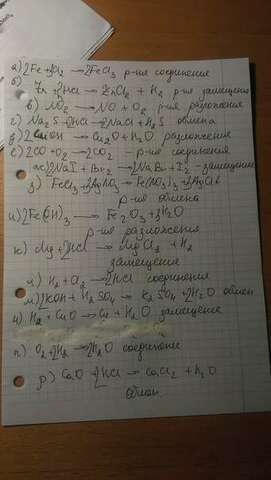 а) 2Fe + 3Cl2 → 2FeCl3 р-ие соединение
б)
Zn + 2HCl → ZnCl2 + H2 р-ие замещение
в) NO2 → NO + O2 р-ия разложения
г) Na2S + 2HCl → 2NaCl + H2S обмена
д) 2CuOH → Cu2O + H2O разложение
е) 2CO + O2 → 2CO2 – р-ие соединения
ж) 2NaI + Br2 → 2NaBr + I2 – замещение
з) FeCl3 + 3AgNO3 → Fe(NO3)3 + 3AgCl↓
р-ие обмена
и) 2Fe(OH)3 → Fe2O3 + 3H2O
р-ие разложения
к) Mg + 2HCl → MgCl2 + H2
замещение
л) H2 + Cl2 → 2HCl соединения
м) 2KOH + H2SO4 → K2SO4 + 2H2O обмен
н) H2 + CuO → Cu + H2O замещение
п) O2 + 2H2 → 2H2O соединение
р) CaO + 2HCl → CaCl2 + H2O
Обмен